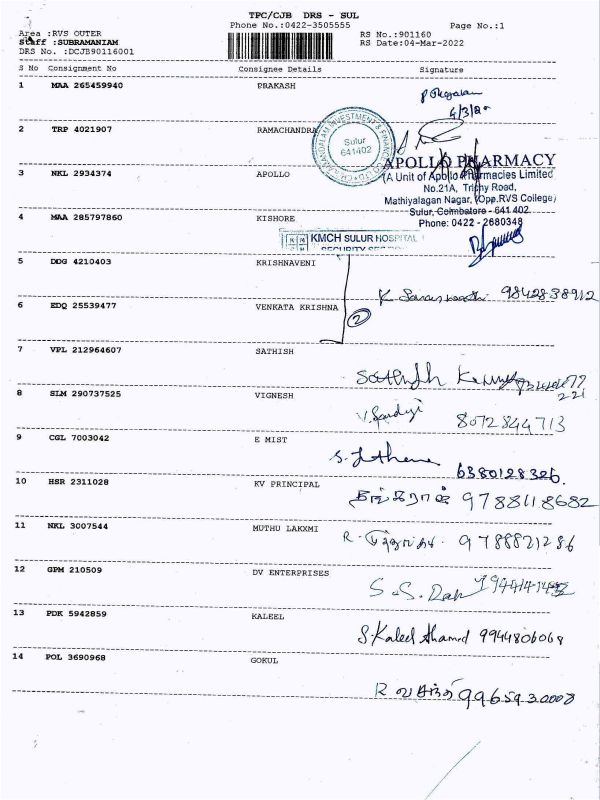 TPC/CJB DRS - SUL
Phone No.:0422-3505555 Page No.:1
Area :RVS OUTER RS No.:901160
Staff :SUBRAMANIAM RS Date:04-Mar-2022
DRS No. :DCJB90116001
S No Consignment No Consignee Details Signature
1 MAA 265459940 PRAKASH
4/3/22
2 TRP 4021907 RAMACHANDRA
INVESTMENT & FINANCE
Sulur
641402
APOLLO PHARMACY
3 NKL 2934374 APOLLO (A Unit of Apollo Pharmacies Limited
No.21A, Trichy Road,
Mathiyalagan Nagar, (Opp.RVS College)
Sulur, Coimbatore - 641 402.
4 MAA 285797860 KISHORE Phone: 0422 - 2680348
KMCH SULUR HOSPITAL
SECURITY SECTION
5 DDG 4210403 KRISHNAVENI
K 9842838912
6 EDQ 25539477 VENKATA KRISHNA 2
7 VPL 212964607 SATHISH
Sathish
8 SLM 290737525 VIGNESH
8072844713
9 CGL 7003042 E MIST
6380128326.
10 HSR 2311028 KV PRINCIPAL
9788118682
11 NKL 3007544 MUTHU LAKXMI R. 9788821286
12 GPM 210509 DV ENTERPRISES
S.S.
13 PDK 5942859 KALEEL
S.Kaleel Ahamd 9944806068
14 POL 3690968 GOKUL
R 9965930008